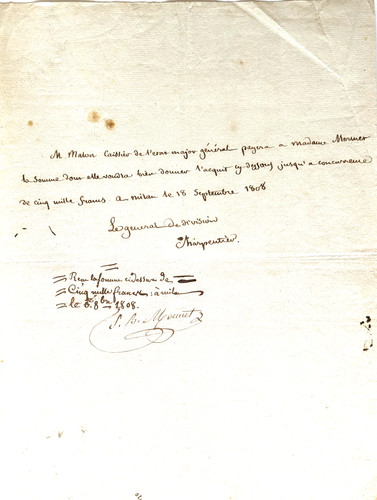 M. Malon Caissier de l'etat major général payera a madame Monnet
la somme dont elle voudra bien donner l'acquit cy dessous jusqu'a concurrence
de cinq mille francs a milan le 18 Septembre 1808
Le general de division
Charpentier
Reçu la somme ci dessus de
Cinq mille francs à milan
le 8bre 1808.
Monnet